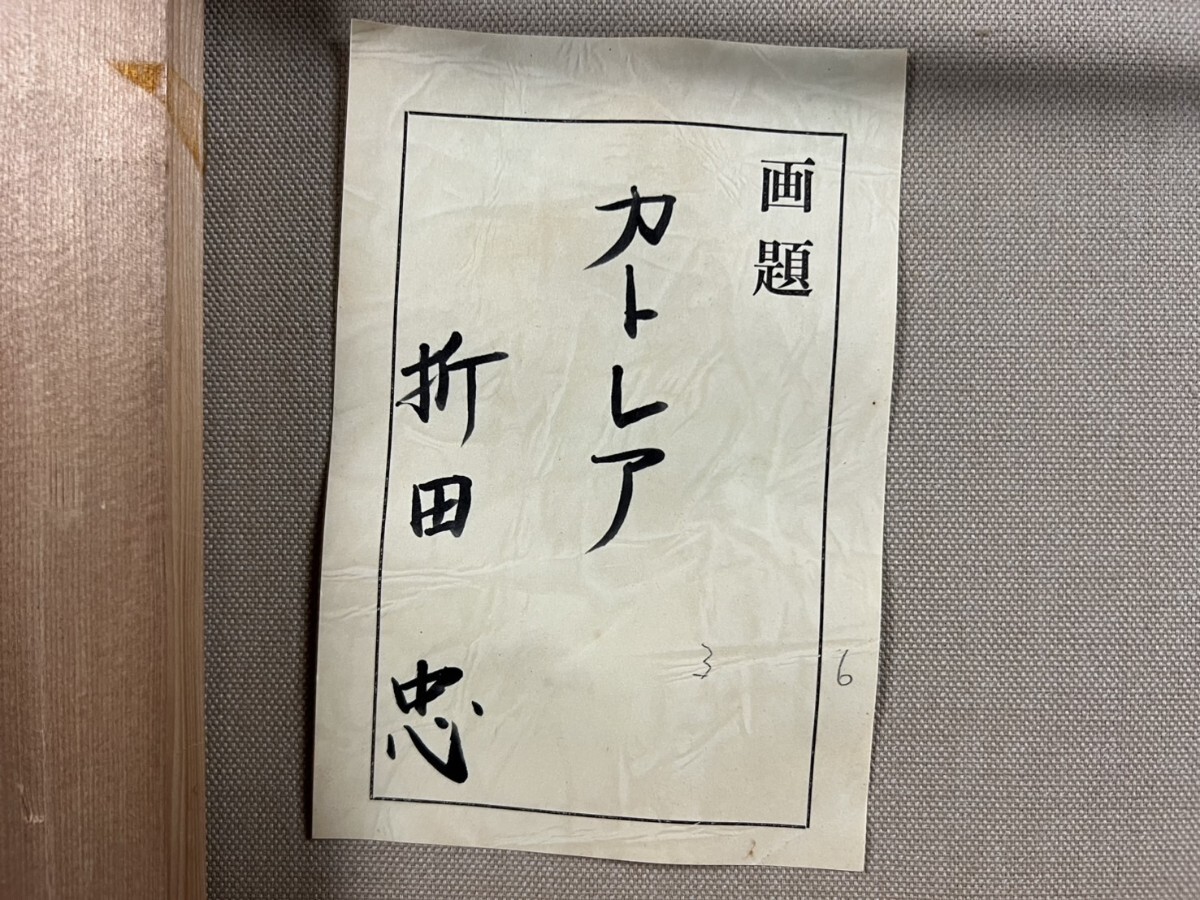 画題
カトレア
折田 忠
3 6